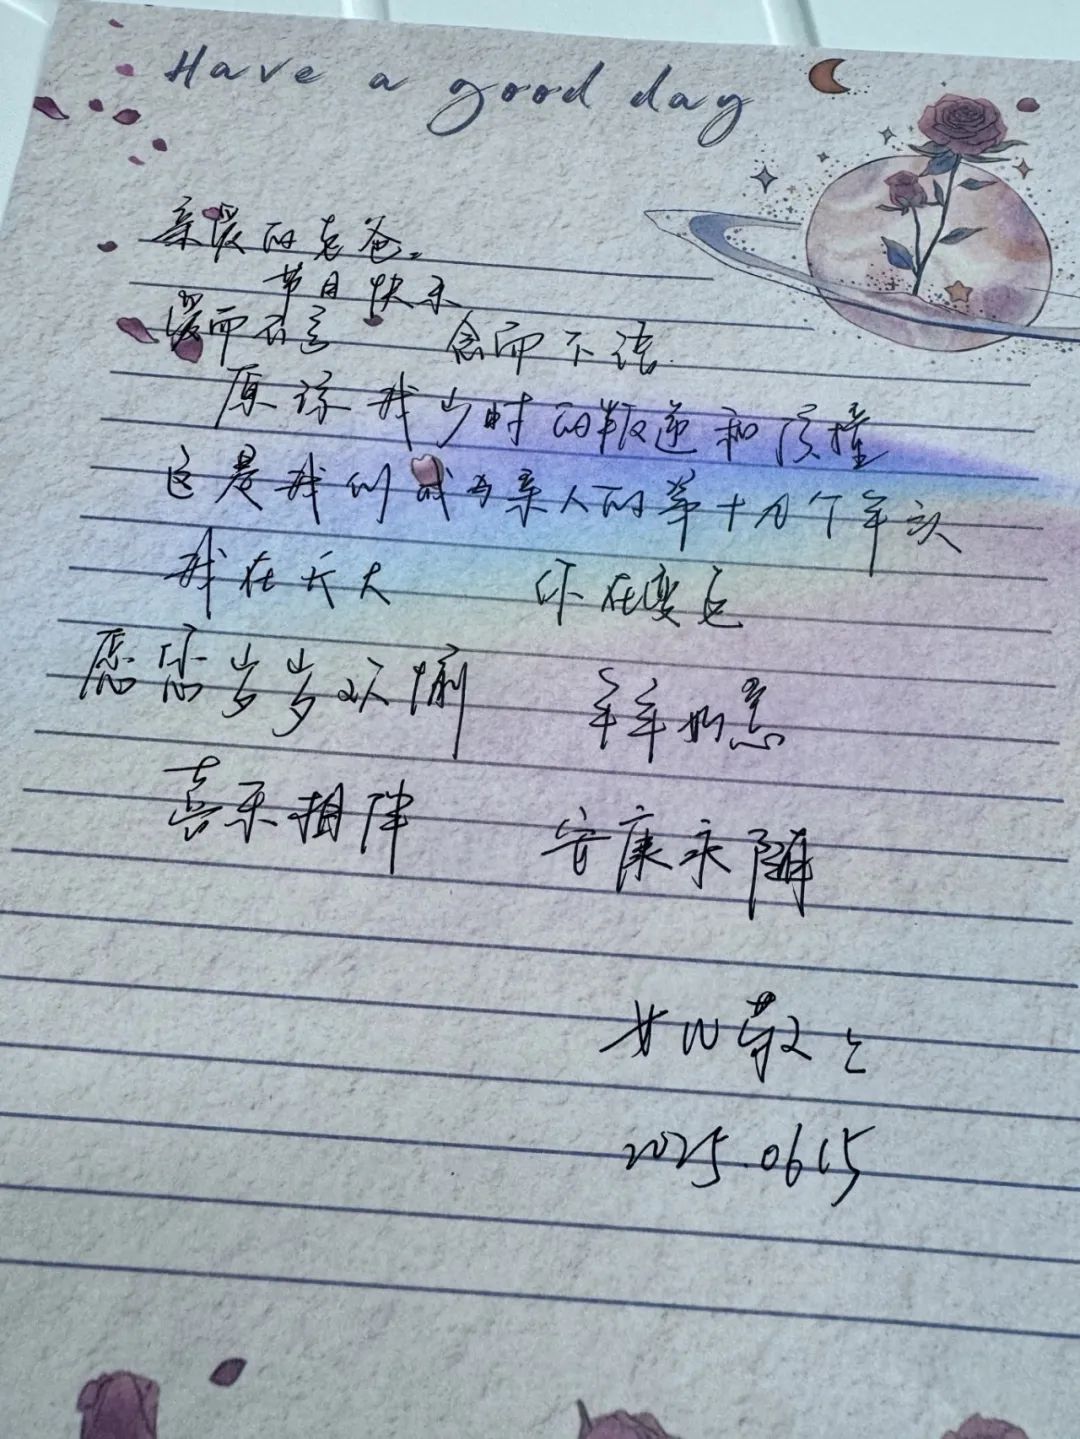 Have a good day
亲爱的老爸。
节日快乐
爱而不言 念而不语
原谅我少时的叛逆和顶撞
这是我们成为亲人的第十个年头
我在长大 你在变老
愿您岁岁欢愉 年年如意
喜乐相伴 安康永随
女儿敬上
2025.0615